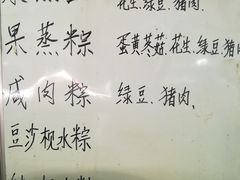 花生.绿豆.猪肉.
果蒸粽 蛋黄.冬菇.花生.绿豆.猪肉
咸肉粽 绿豆.猪肉.
豆沙枧水粽